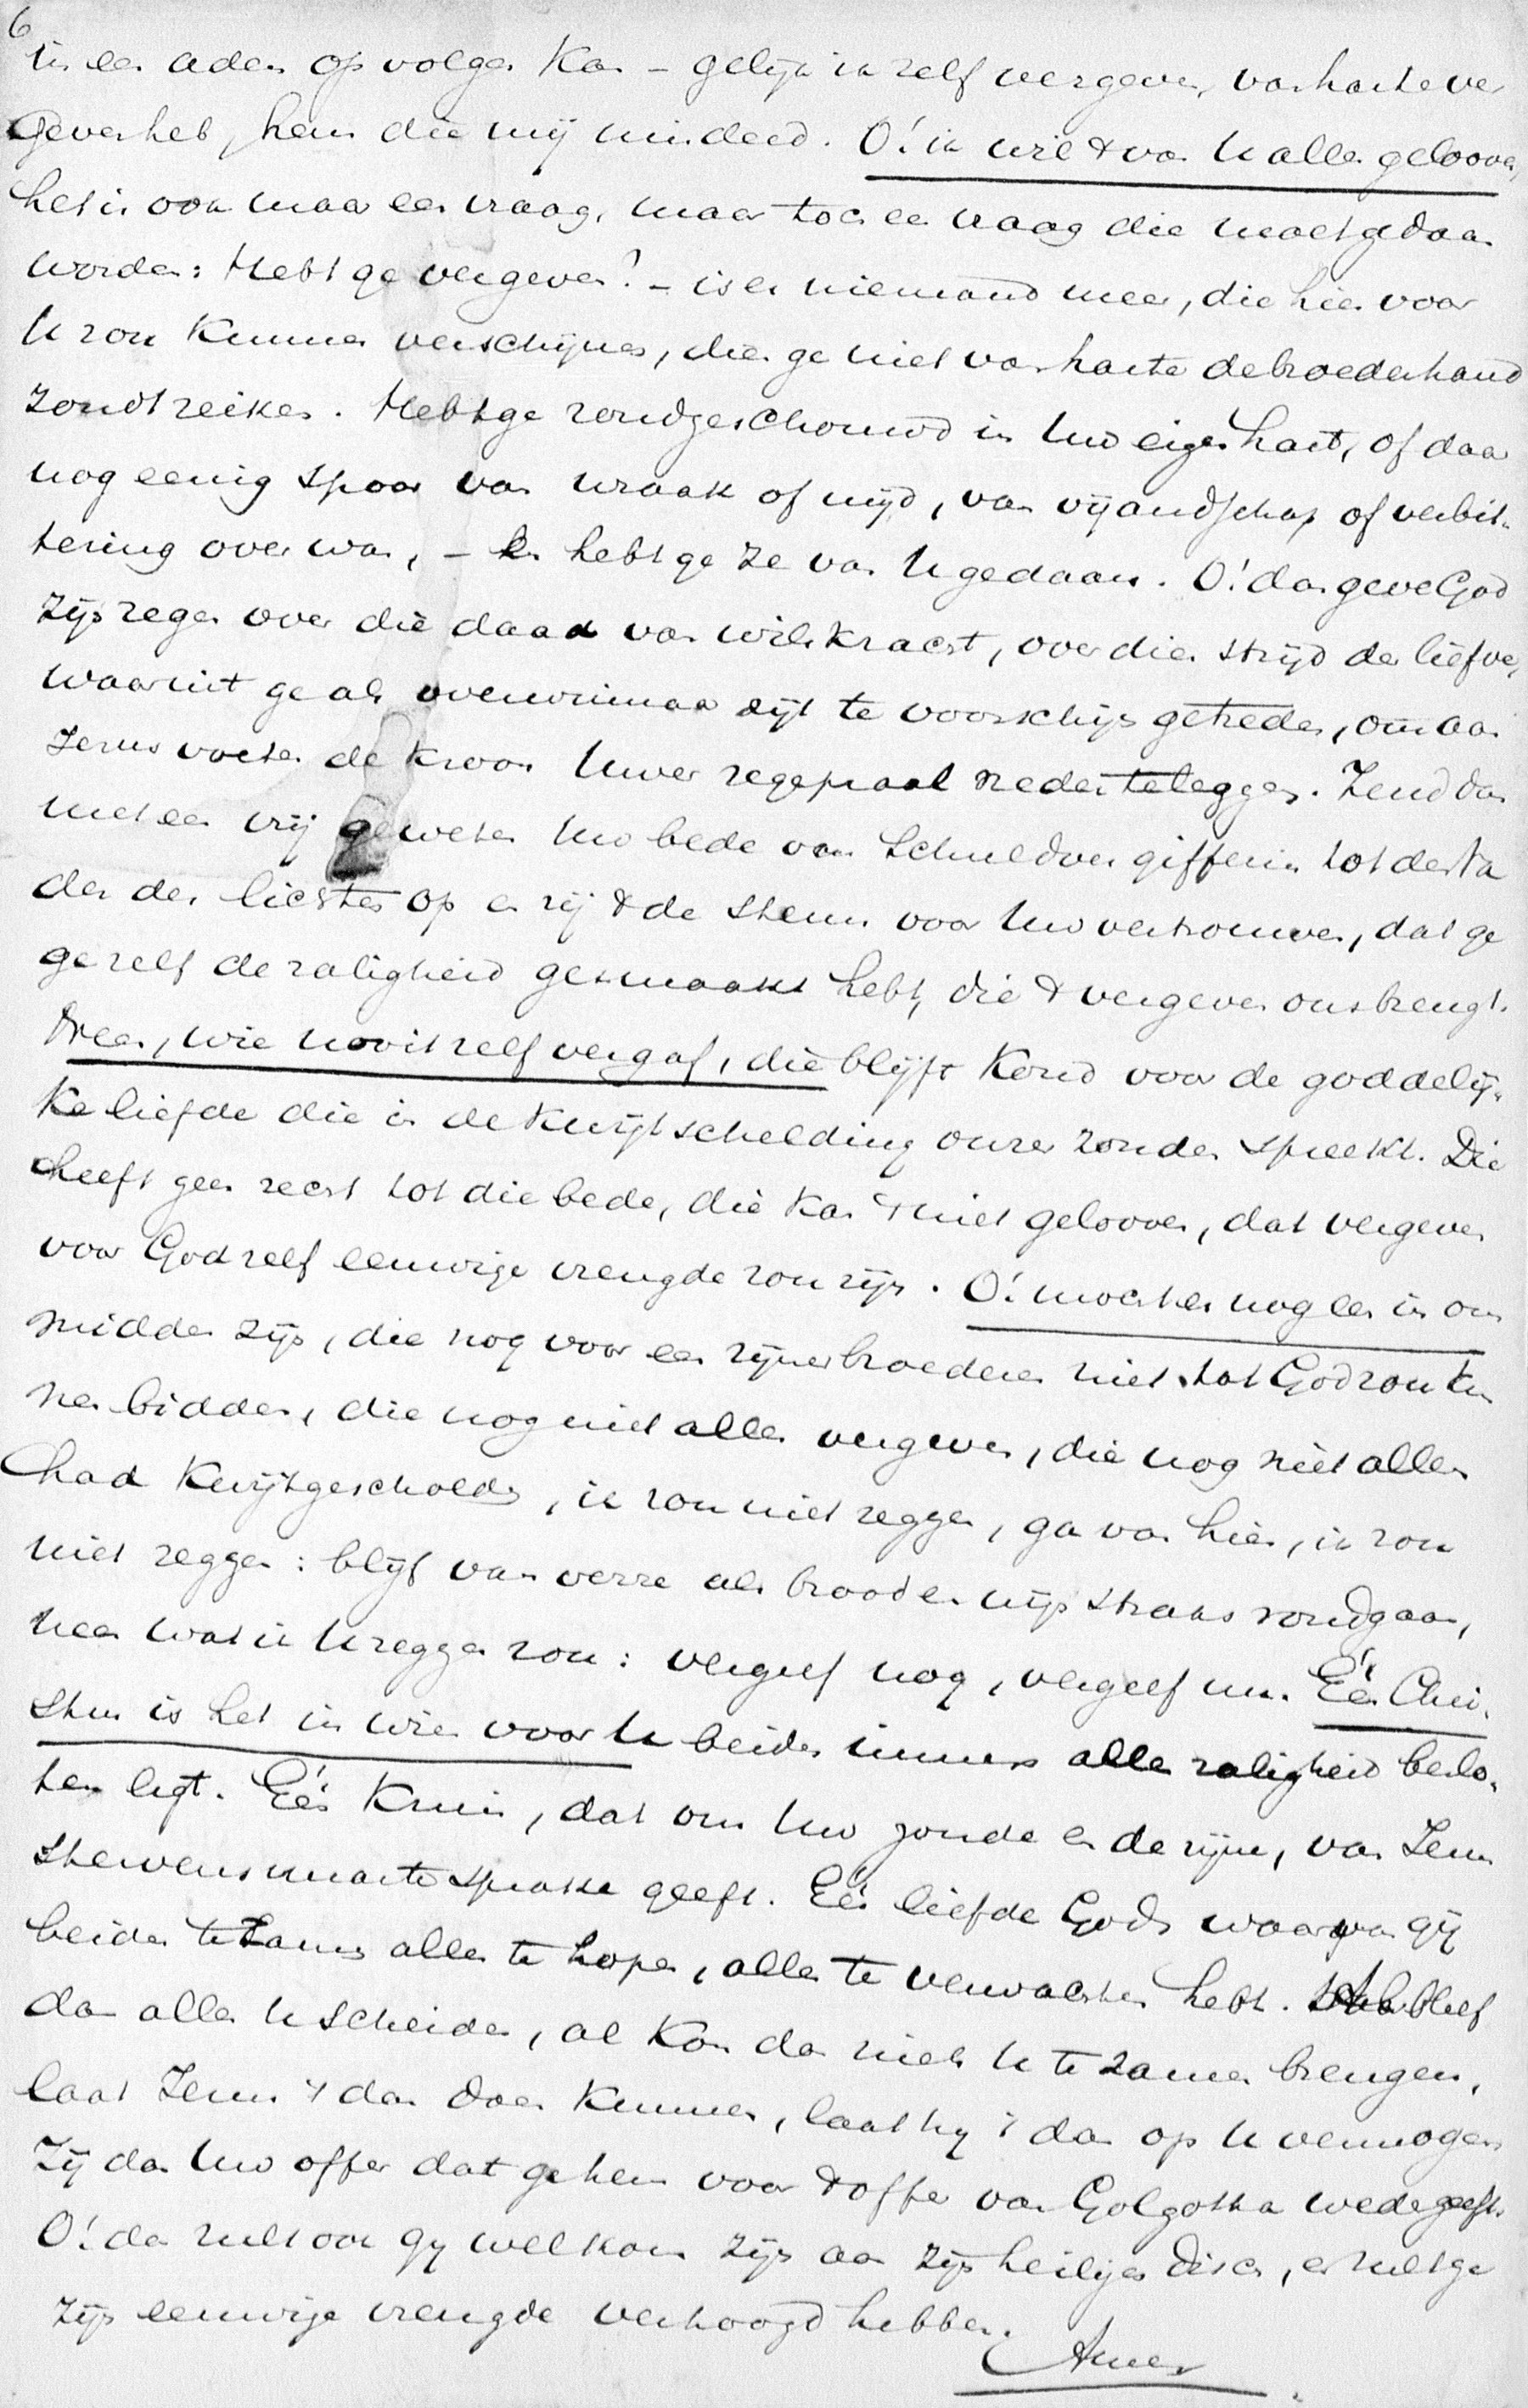 6
in een adem op volgen kan – gelijk ik zelf vergeven, van harte ver
geven heb, hem die mij misdeed. O! ik wil 't van U allen gelooven,
het is ook maar een vraag, maar toch een vraag die moet gedaan
worden: Hebt ge vergeven? – is er niemand meer, die hier voor
U zou kunnen verschijnen, dien ge niet van harte de broederhand
zoudt reiken. Hebt ge rondgeschouwd in Uw eigen hart, of daar
nog eenig spoor van wraak of nijd, van vijandschap of verbit-
tering over was, – En hebt ge ze van U gedaan. O! dan geve God
zijn zegen over die daad van wilskracht, over dien strijd der liefde,
waaruit ge als overwinnaar zijt te voorschijn getreden, om aan
Jezus voeten de kroon Uwer zegepraal neder te leggen. Zend dan
met een vrij geweten Uw bede van schuldvergiffenis tot den Va
der der lichten op en zij 't de steun voor Uw vertrouwen, dat ge
ge zelf de zaligheid gesmaakt hebt, die 't vergeven ons brengt.
Neen, wie nooit zelf vergaf, die blijft koud voor de goddelij-
ke liefde die in de kwijtschelding onzer zonden spreekt. Die
heeft geen recht tot die bede, die kan 't niet gelooven, dat vergeven
voor God zelf eeuwige vreugde zou zijn. O! mocht er nog een in ons
midden zijn, die nog voor een zijner broederen niet tot God zou kun
nen bidden, die nog niet allen vergeven, die nog niet allen
had kwijtgescholden, ik zou niet zeggen, ga van hier, ik zou
niet zeggen: blijf van verre als brood en wijn straks rondgaan,
neen wat ik U zeggen zou: vergeef nog, vergeef nu. Eén Chri-
stus is het in wien voor U beiden immers alle zaligheid beslo-
ten ligt. Eén Kruis, dat om Uw zonde en de zijne, van Jezus
stervenssmarte sprake geeft. Eén liefde Gods waarvan gij
beiden te zamen alles te hopen, alles te verwachten hebt. Al bleef
dan alles U scheiden, al kon dan niets U te zamen brengen,
laat Jezus 't dan doen kunnen, laat hij 't dan op U vermogen
Zij dan Uw offer dat ge hem voor 't offer van Golgotha wedergeeft.
O! dan zult ook gij welkom zijn aan zijn heiligen disch, en zult ge
zijn eeuwige vreugde verhoogd hebben.
Amen